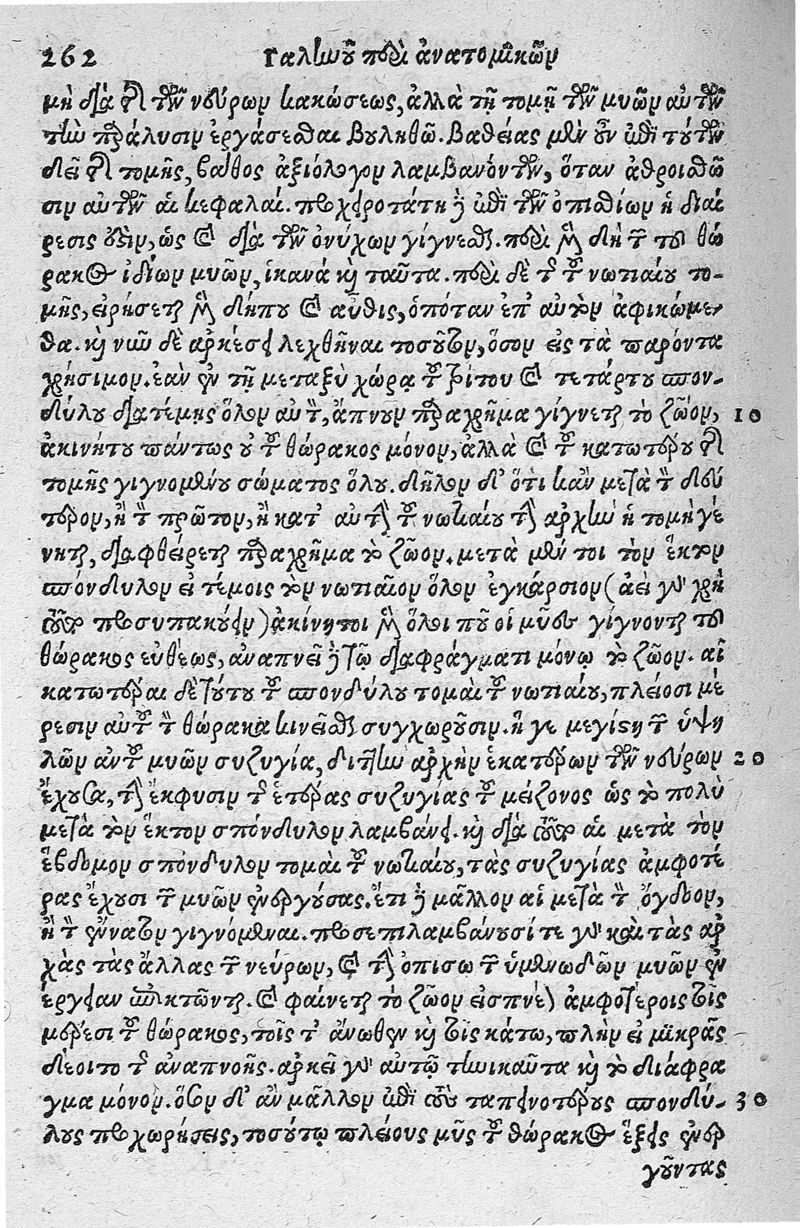 262 Γαληνοῦ περὶ ἀνατομικῶν
μὴ διὰ τῆς τῶν νεύρων κακώσεως, ἀλλὰ τῇ τομῇ τῶν μυῶν αὐτῶν
τὴν παράλυσιν ἐργάσεσθαι βουληθῶ. βαθείας μὲν οὖν ἐπὶ τούτων
δεῖ τῆς τομῆς, βάθος ἀξιόλογον λαμβανόντων, ὅταν ἀθροισθῶ
σιν αὐτῶν αἱ κεφαλαί. προχειροτάτη δὲ ἐπὶ τῶν ὀπισθίων ἡ διαί
ρεσις ἐστιν, ὡς καὶ διὰ τῶν ὀνύχων γίγνεσθαι. περὶ μὲν δὴ τῶν τοῦ θώ
ρακος ἰδίων μυῶν, ἱκανὰ καὶ ταῦτα. περὶ δὲ τῆς τοῦ νωτιαίου το-
μῆς, εἰρήσεται μὲν δήπου καὶ αὖθις, ὁπόταν ἐπ' αὐτὸν ἀφικώμε-
θα. καὶ νῦν δὲ ἀρκέσει λεχθῆναι τοσοῦτον, ὅσον εἰς τὰ παρόντα
χρήσιμον. ἐὰν ἐν τῇ μεταξὺ χώρᾳ τοῦ τρίτου καὶ τετάρτου σπον-
δύλου διατέμῃς ὅλον αὐτὸν, ἄπνουν παραχρῆμα γίγνεται τὸ ζῶον, 10
ἀκινήτου πάντως οὐ τοῦ θώρακος μόνον, ἀλλὰ καὶ τοῦ κατωτέρου τῆς
τομῆς γιγνομένου σώματος ὅλου. δῆλον δ' ὅτι κᾂν μετὰ τὸν δεύ
τερον, ἢ τὸν πρῶτον, ἢ κατ' αὐτὴν τοῦ νωτιαίου τὴν ἀρχὴν ἡ τομὴ γέ
νηται, διαφθείρεται παραχρῆμα τὸ ζῶον. μετὰ μέν τοι τὸν ἕκτον
σπόνδυλον εἰ τέμοις τὸν νωτιαῖον ὅλον ἐγκάρσιον (ἀεὶ γὰρ χρὴ
τοῦτο προσυπακούειν) ἀκίνητοι μὲν ὅλοι που οἱ μῦες γίγνονται τοῦ
θώρακος εὐθέως, ἀναπνεῖ δὲ τῷ διαφράγματι μόνῳ τὸ ζῶον. αἱ
κατωτέραι δὲ τούτου τοῦ σπονδύλου τομαὶ τοῦ νωτιαίου, πλείοσι μέ
ρεσιν αὐτοῦ τὸν θώρακα κινεῖσθαι συγχωροῦσιν. ἥ γε μεγίστη τῶν ὑψη
λῶν αὐτοῦ μυῶν συζυγία, διττὴν ἀρχὴν ἑκατέρων τῶν νεύρων 20
ἔχουσα, τὴν ἔκφυσιν τῆς ἑτέρας συζυγίας τοῦ μείζονος ὡς τὸ πολὺ
μετὰ τὸν ἕκτον σπόνδυλον λαμβάνει. καὶ διὰ τοῦτο αἱ μετὰ τὸν
ἕβδομον σπόνδυλον τομαὶ τοῦ νωτιαίου, τὰς συζυγίας ἀμφοτέ
ρας ἔχουσι τῶν μυῶν ἐνεργούσας. ἔτι δὲ μᾶλλον αἱ μετὰ τὸν ὄγδοον,
ἢ τὸν ἔννατον γιγνόμεναι. προσεπιλαμβάνουσί τε γὰρ καὶ τὰς ἀρ
χὰς τὰς ἄλλας τῶν νεύρων, καὶ τὴν ὀπίσω τῶν ὑμενωδῶν μυῶν ἐν
έργειαν ἐπικτῶνται. καὶ φαίνεται τὸ ζῶον εἰσπνέον ἀμφοτέροις τοῖς
μέρεσι τοῦ θώρακος, τοῖς τ' ἄνωθεν καὶ τοῖς κάτω, πλὴν εἰ μικρᾶς
δέοιτο τῆς ἀναπνοῆς. ἀρκεῖ γὰρ αὐτῷ τηνικαῦτα καὶ τὸ διάφρα
γμα μόνον. ὅσον δ' ἂν μᾶλλον ἐπὶ τοὺς ταπεινοτέρους σπονδύ- 30
λους προχωρήσεις, τοσούτῳ πλείους μῦς τοῦ θώρακος ἕξεις ἐνερ
γοῦντας